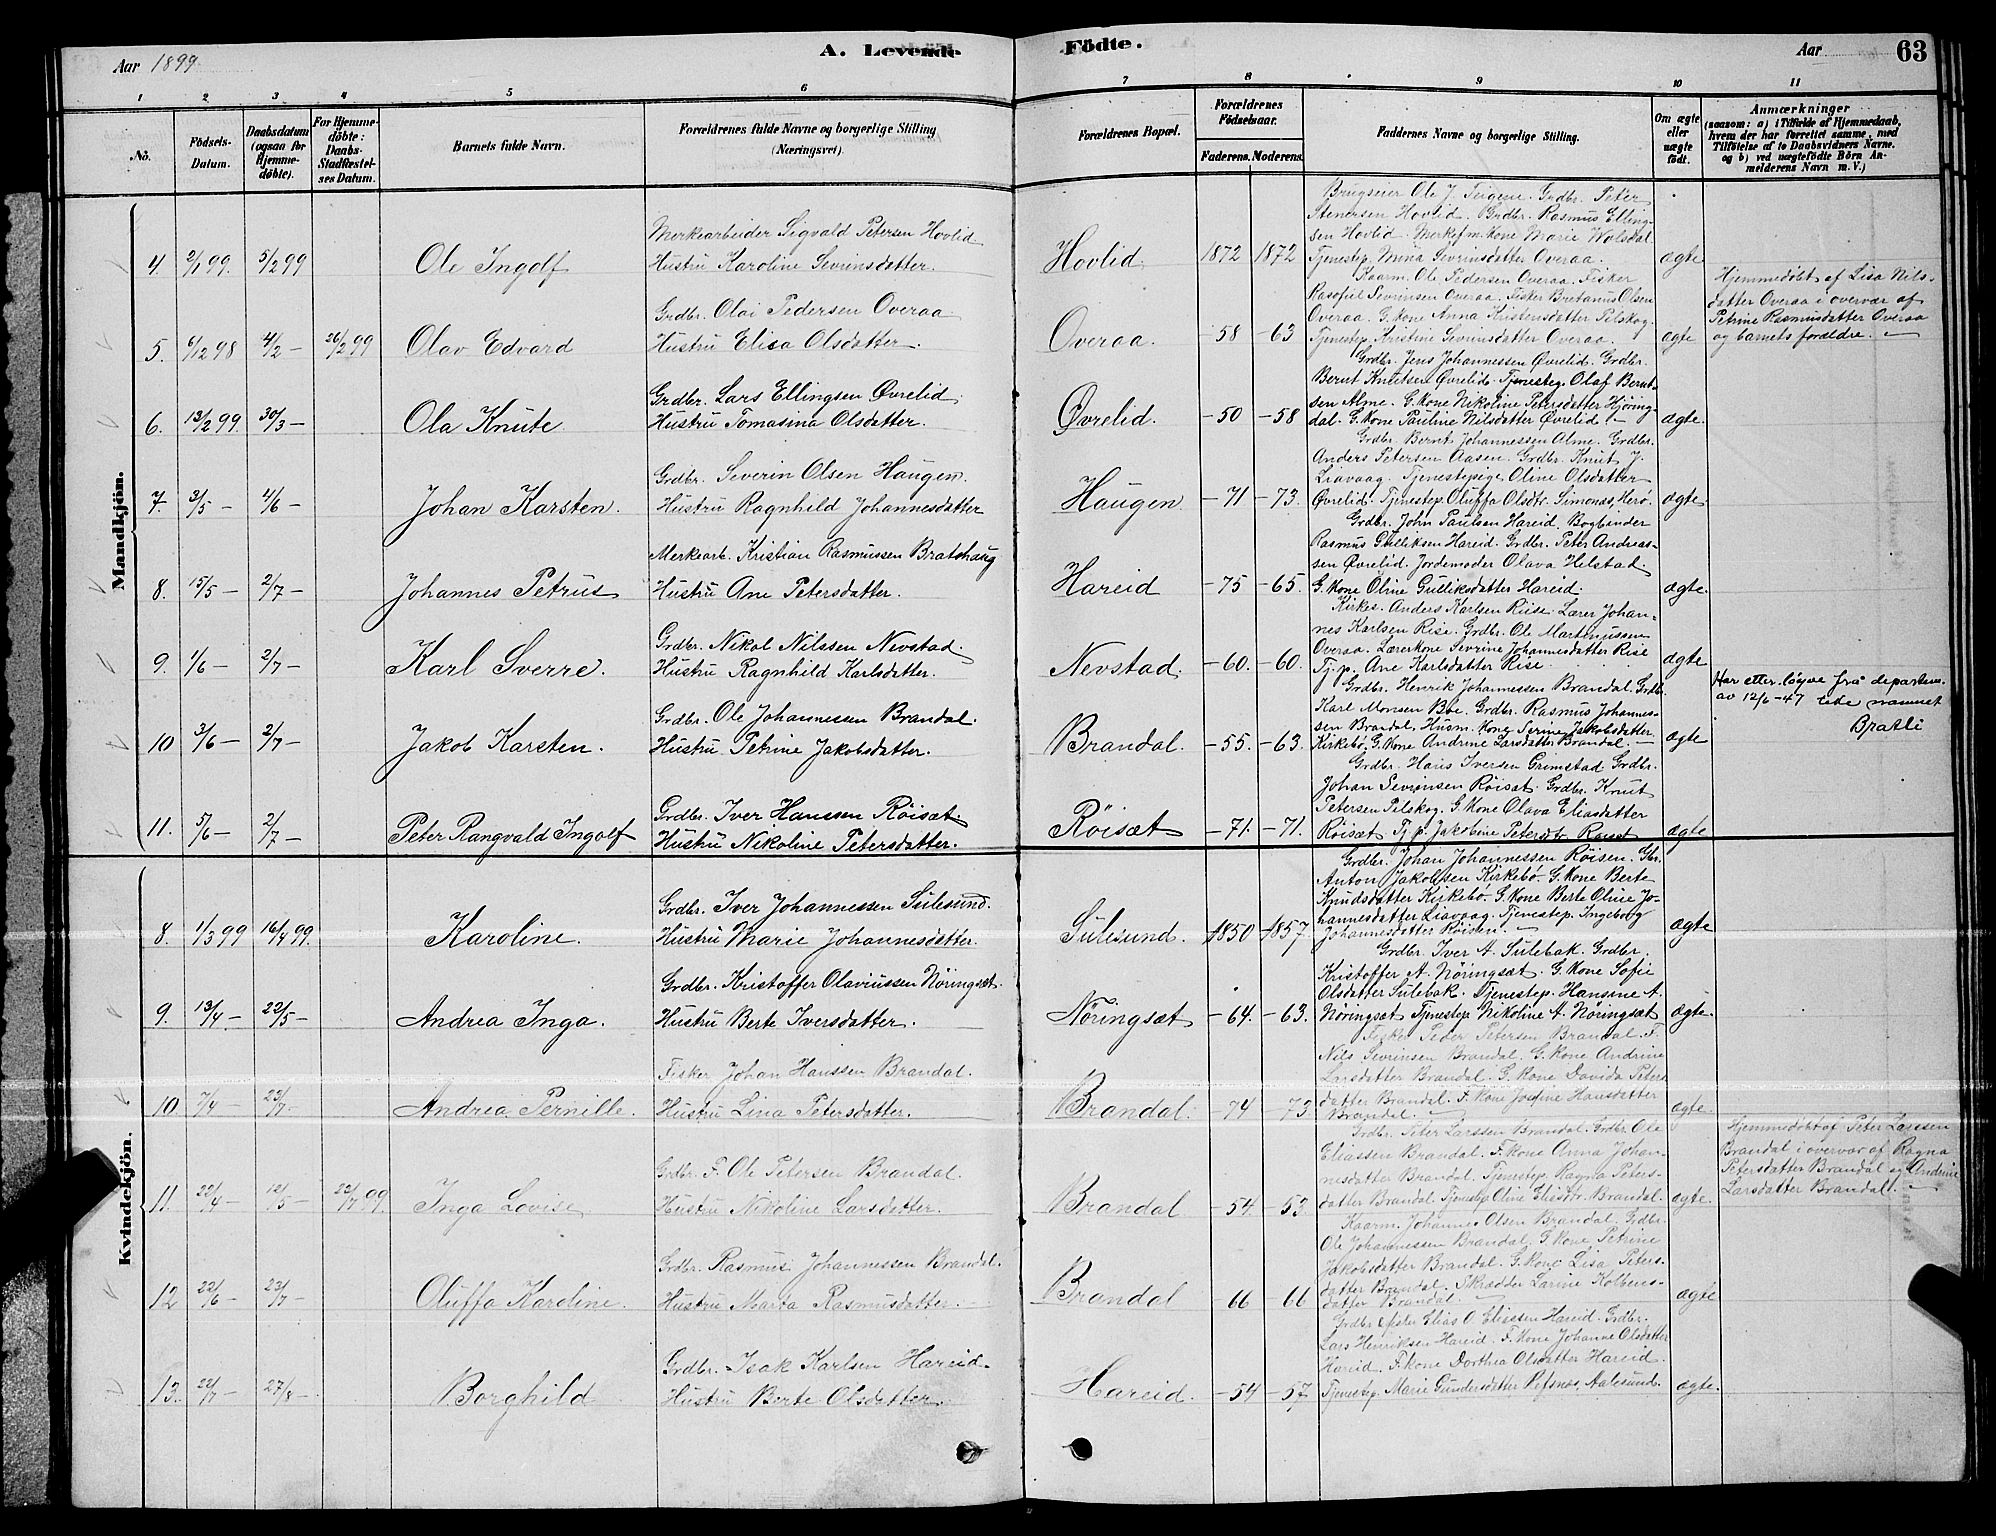 Aar 1899.
A. Levende
Födte.
Aar
63
1
2
3
4
5
6
7
8
9
10
11
No.
Födsels-
Datum.
Daabsdatum
(ogsaa for
Hjemme-
döbte).
For Hjemme-
döbte:
Daabs-
Stadfæstel-
ses Datum.
Barnets fulde Navn.
Forældrenes fulde Navne og borgerlige Stilling
(Næringsvei).
Forældrenes Bopæl.
Forældrenes
Födselsaar.
Faderens. Moderens.
Faddernes Navne og borgerlige Stilling.
Om ægte
eller
uægte
født.
Anmærkninger
(saasom: a) i Tilfælde af Hjemmedaab,
hvem der har forrettet samme, med
Tilføielse af to Daabsvidners Navne.
og b) ved uægtefödte Börn An-
melderens Navn m. V.)
Mandkjön.
4. 2/1 99. 5/2 99
Ole Ingolf
Merkearbeider Sigvald Petersen Hovlid
Hustru Karoline Sevrinsdatter.
Hovlid. 1872 1872
Brugseier Ole J. Teigene. Grdbr. Peter
Stenersen Hovlid. Grdbr. Rasmus Elling-
sen Hovlid. Merkefm. Kone Marie Wolsdal
Tjenestep. Mina Sevrinsdatter Overaa.
ægte
5. 6/12 98 4/2 — 26/2 99
Olav Edvard
Grdbr. Olai Pedersen Overaa
Hustru Elisa Olsdatter.
Overaa. — 58 — 63
Kaarm. Ole Pedersen Overaa. Fisker
Rasofiel Sevrinsen Overaa. Fisker Bretanus Olsen
Overaa. G. Kone Anna Kristensdatter Pilskog.
Tjenestep. Kristine Sevrinsdatter Overaa.
ægte
Hjemmedøbt af Lisa Nils-
datter Overaa i overvær af
Petrine Rasmusdatter Overaa
og barnets forældre. —
6. 13/2 99. 30/3 —
Ola Knute
Grdbr. Lars Ellingsen Øvrelid.
Hustru Tomasina Olsdatter.
Øvrelid. — 50 — 58
Grdbr. Jens Johannessen Øvrelid. Grdbr.
Bernt Knutsen Øvrelid. Tjenesteg. Olaf Bernt-
sen Alme. G. Kone Nikoline Petersdatter Hjøring-
dal. G. Kone Pauline Nilsdatter Øvrelid. —
ægte.
7. 3/5 — 4/6 —
Johan Karsten.
Grdbr. Severin Olsen Haugen.
Hustru Ragnhild Johannesdatter
Haugen — 71 — 73.
Grdbr. Bernt Johannessen Alme. Grdbr.
Anders Petersen Aasen. Grdbr. Knut J.
Liavaag. Tjenestepige Oline Olsdatter
Øvrelid. Tjenestep. Oluffa Olsdtr. Simonæs, Herø.
ægte
8. 15/5 — 2/7 —
Johannes Petrus
Merkearb. Kristian Rasmussen Bratshaug
Hustru Ane Petersdatter.
Hareid — 75 — 65.
Grdbr. John Paulsen Hareid. Bogbinder
Rasmus Gulliksen Hareid. Grdbr. Peter Andreas-
sen Øvrelid. Jordemoder Olava Helstad.
G. Kone Oline Gulliksdatter Hareid.
ægte.
9. 1/6 — 2/7 —
Karl Sverre.
Grdbr. Nikol Nilssen Nevstad.
Hustru Ragnhild Karlsdatter.
Nevstad. — 60. — 60.
Kirkes. Anders Karlsen Riise. Lærer Johan-
nes Karlsen Rise. Grdbr. Ole Martinussen
Overaa. Lærerkone Sevrine Johannesdatter Rise
Tj. p. Ane Karlsdatter Rise.
ægte
10 3/6 — 2/7 —
Jakob Karsten.
Grdbr. Ole Johannessen Brandal.
Hustru Petrine Jakobsdatter.
Brandal. — 55. — 63.
Grdbr. Henrik Johannessen Brandal. Grdbr.
Karl Monsen Boe. Grdbr. Rasmus Johannes-
sen Brandal. Husm. Kone Serine Jakobsdatter
Kirkebø. G. Kone Andrine Larsdatter Brandal. —
ægte
Har etter løyve frå departem.
av 12/6-47 lete namnet
Bratli
11. 5/6 — 2/7 —
Peter Rangvald Ingolf
Grdbr. Iver Hanssen Röisæt.
Hustru Nikoline Petersdatter.
Röisæt — 71. — 71.
Grdbr. Hans Iversen Grimstad. Grdbr.
Johan Sevrinsen Röisæt. Grdbr. Knut
Petersen Pilskog. G. Kone Olava Eliasdatter
Röisæt. Tj. p. Jakobine Petersdtr. Röisæt
ægte
Kvindekjön.
8. 1/3 99 16/4 99.
Karoline.
Grdbr. Iver Johannessen Sulesund.
Hustru Marie Johannesdatter.
Sulesund. 1850 1857.
Grdbr. Johan Johannessen Røisen. Gbr.
Anton Jakobsen Kirkebø. G. Kone Berte
Knudsdatter Kirkebø. G. Kone Berte Oline Jo-
hannesdatter Liavaag. Tjenestep. Ingeborg
Johannesdatter Røisen. —
ægte
9. 13/4 — 22/5 —
Andrea Inga.
Grdbr. Kristoffer Olavinssen Nöringsæt.
Hustru Berte Iversdatter.
Nöringsæt — 64. — 63.
Grdbr. Iver A. Sulebak. Grdbr.
Kristoffer A. Nöringsæt. G. Kone Sofie
Olsdatter Sulebak. Tjenestep. Hansine A.
Nöringsæt Tjenestep. Nikoline A. Nöringsæt
ægte.
10 7/4 — 23/7 —
Andrea Pernille.
Fisker Johan Hanssen Brandal.
Hustru Lina Petersdatter.
Brandal. — 74 — 73
Fisker Peder Petersen Brandal. F.
Nils Sevrinsen Brandal. G. Kone Andrine
Larsdatter Brandal. G. Kone Davida Peters-
datter Brandal. F. Kone Josefine Hansdatter
Brandal. —
ægte.
11. 22/4 — 12/5 — 22/7 99.
Inga Lovise
Grdbr. F. Ole Petersen Brandal.
Hustru Nikoline Larsdatter.
Brandal — 54. — 53.
Grdbr. Peter Larssen Brandal. Grdbr. Ole
Eliassen Brandal. F. Kone Anna Johan-
nesdatter Brandal. Tjenestep. Ragna Peters-
datter Brandal. Tjenestep. Oline Eliasdtr. Brandal.
ægte.
Hjemmedøbt af Peter Larssen
Brandal i overvær af Ragna
Petersdatter Brandal og Andrine
Larsdatter Brandal. —
12 22/6 — 23/7 —
Oluffa Karoline.
Grdbr. Rasmus Johannessen Brandal.
Hustru Marta Rasmusdatter. —
Brandal — 66 — 66
Kaarm. Johannes Olsen Brandal. Grdbr.
Ole Johannessen Brandal. G. Kone Petrine
Jakobsdatter Brandal. G. Kone Lisa Peters-
datter Brandal. Skrædder Larine Kolbens-
datter Brandal.
ægte
13. 22/7 — 27/8 —
Borghild
Grdbr. Isak Karlsen Hareid.
Hustru Berte Olsdatter.
Hareid. — 54 — 57.
Grdbr. Elias O. Eliassen Hareid. Grdbr.
Lars Henriksen Hareid. F. Kone Johanne Olsdatter
Hareid. F. Kone Dorthea Olsdatter Hareid.
Tjenestep. Marie Gundersdatter Refsnæs, Aalesund.
ægte.